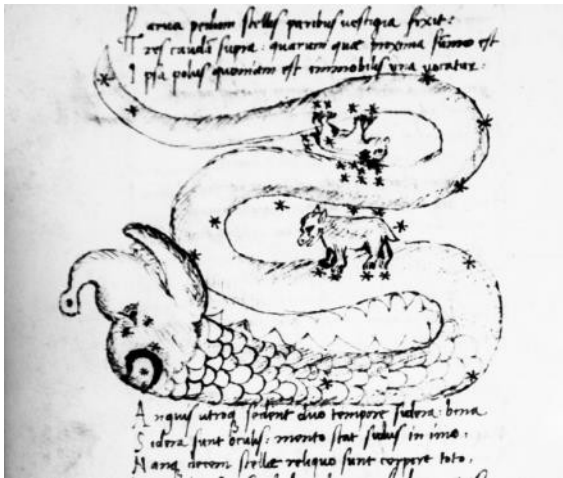 P arua pedum stellis paribus uestigia fixit:
T res caudā supra: quarum quae proxima sūmo est
I psa polus quoniam est immobilis una uocatur.
A nguis utroq sedent duo tempore sidera: bina
S idera sunt oculis: mento stat sidus in imo.
N amq decem stellae reliquo sunt corpore toto,